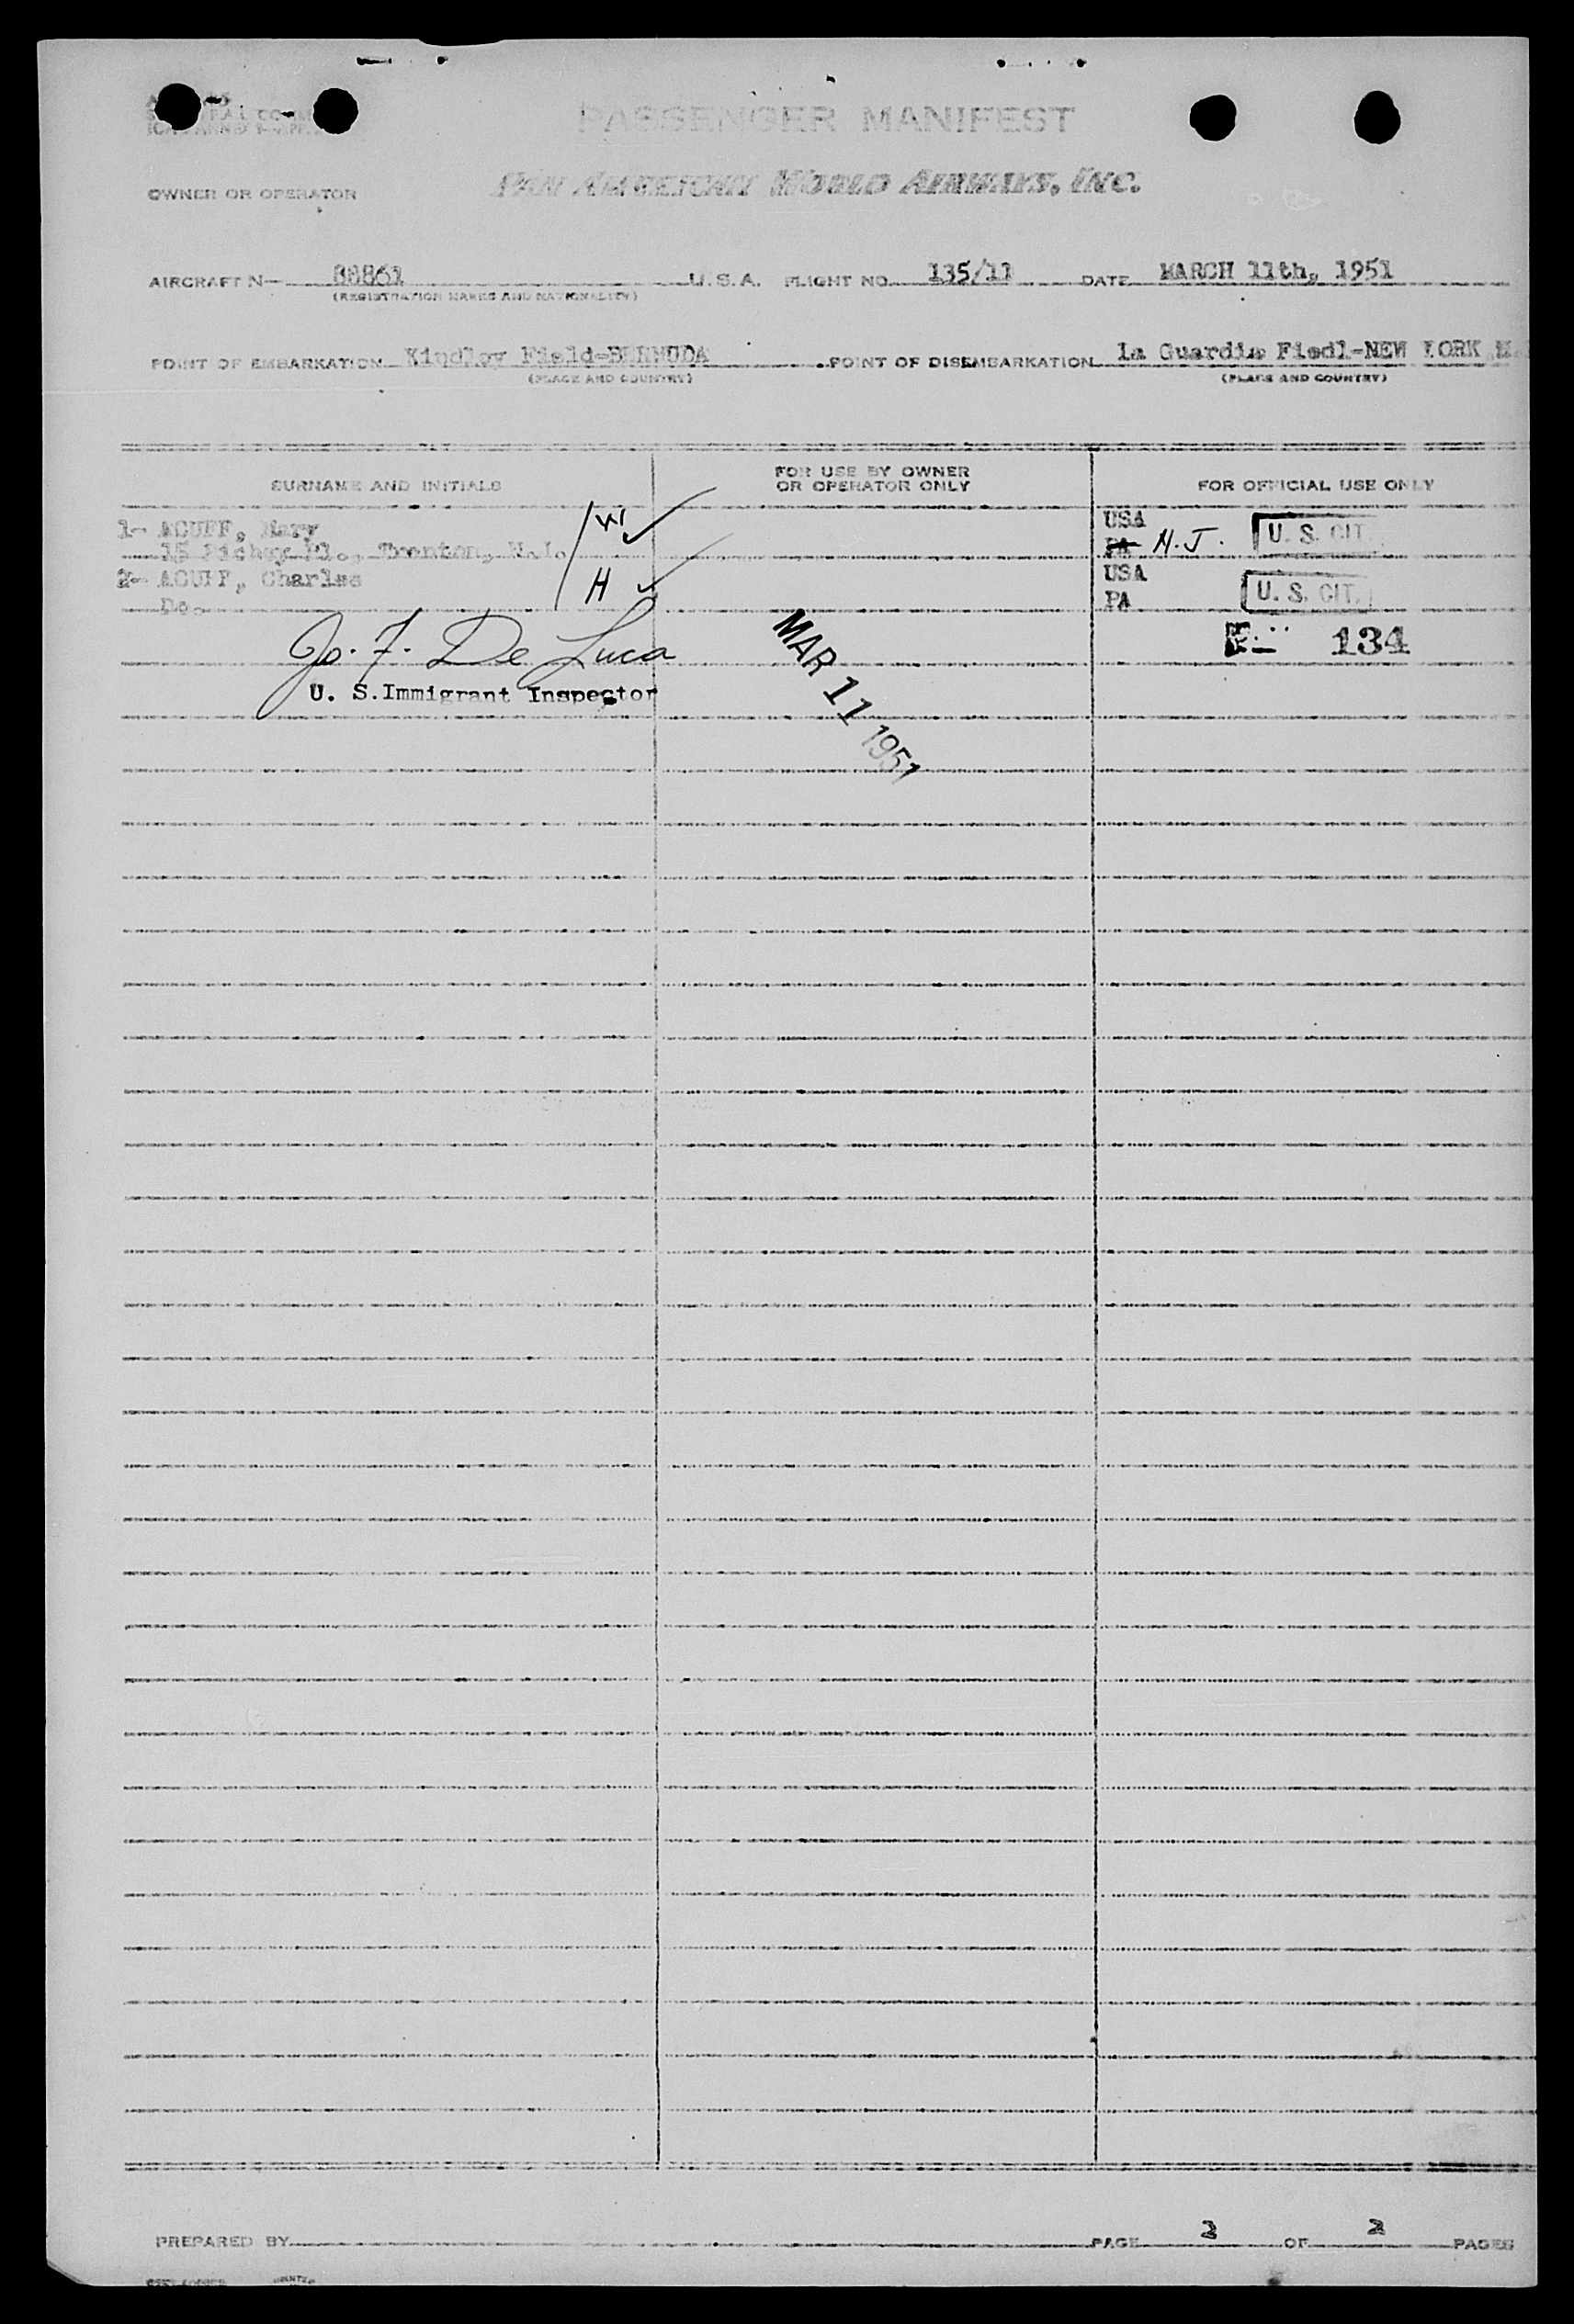 PASSENGER MANIFEST
OWNER OR OPERATOR PAN AMERICAN WORLD AIRWAYS, INC.
AIRCRAFT N- 88861 U.S.A. FLIGHT NO. 135/11 DATE MARCH 11th, 1951
(REGISTRATION MARKS AND NATIONALITY)
POINT OF EMBARKATION Kindley Field-BERMUDA POINT OF DISEMBARKATION La Guardia Fiedl-NEW YORK N.
(PLACE AND COUNTRY) (PLACE AND COUNTRY)
SURNAME AND INITIALS FOR USE BY OWNER OR OPERATOR ONLY FOR OFFICIAL USE ONLY
1- ACUFF, Mary W USA U. S. CIT.
15 Pl., Trenton, N.J. PA N.J.
2- ACUFF, Charles H USA U. S. CIT.
Do. PA
134
Jo. F. De Luca
U. S. Immigrant Inspector
MAR 11 1951
PREPARED BY PAGE 2 OF 2 PAGES